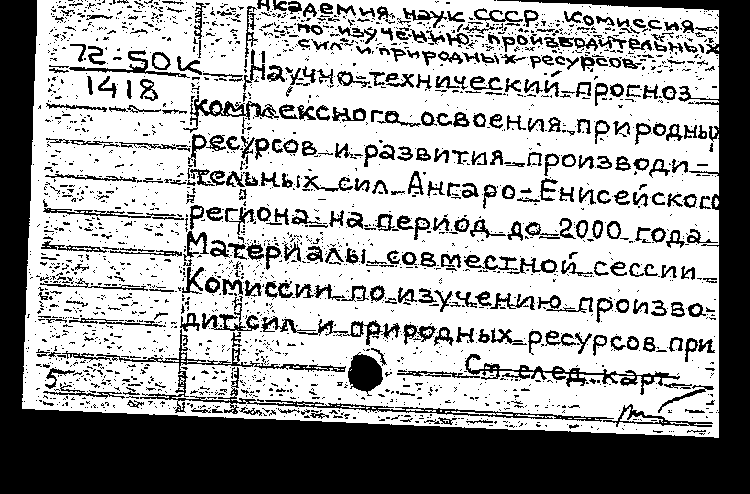 Академия наук СССР. Комиссия
по изучению производительных
сил и природных ресурсов.
72-5ОК
1418
Научно-технический прогноз
комплексного освоения природных
ресурсов и развития производи-
тельных сил Ангаро-Енисейского
региона на период до 2000 года.
Материалы совместной сессии
Комиссии по изучению произво-
дит. сил и природных ресурсов при
См. след. карт.
5